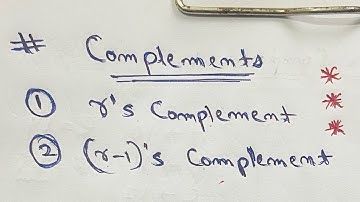 # Complements
① r's Complement
② (r-1)'s Complement